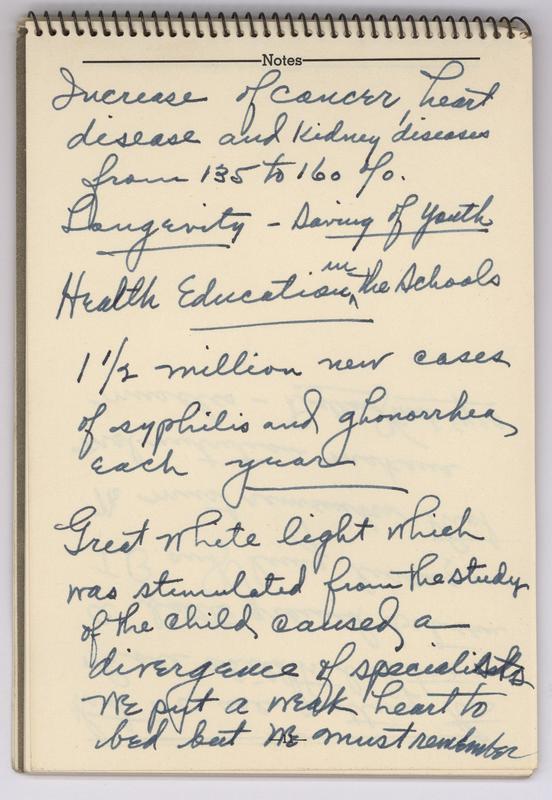 Notes
Increase of cancer, heart
disease and Kidney diseases
from 135 to 160 %.
Longevity - Saving of Youth
Health Education in the Schools
1 1/2 million new cases
of syphilis and ghonorrhea,
each year
Great white light which
was stimulated from the study
of the child, caused, a
divergence of specialists
We put a weak heart to
bed but we must remember